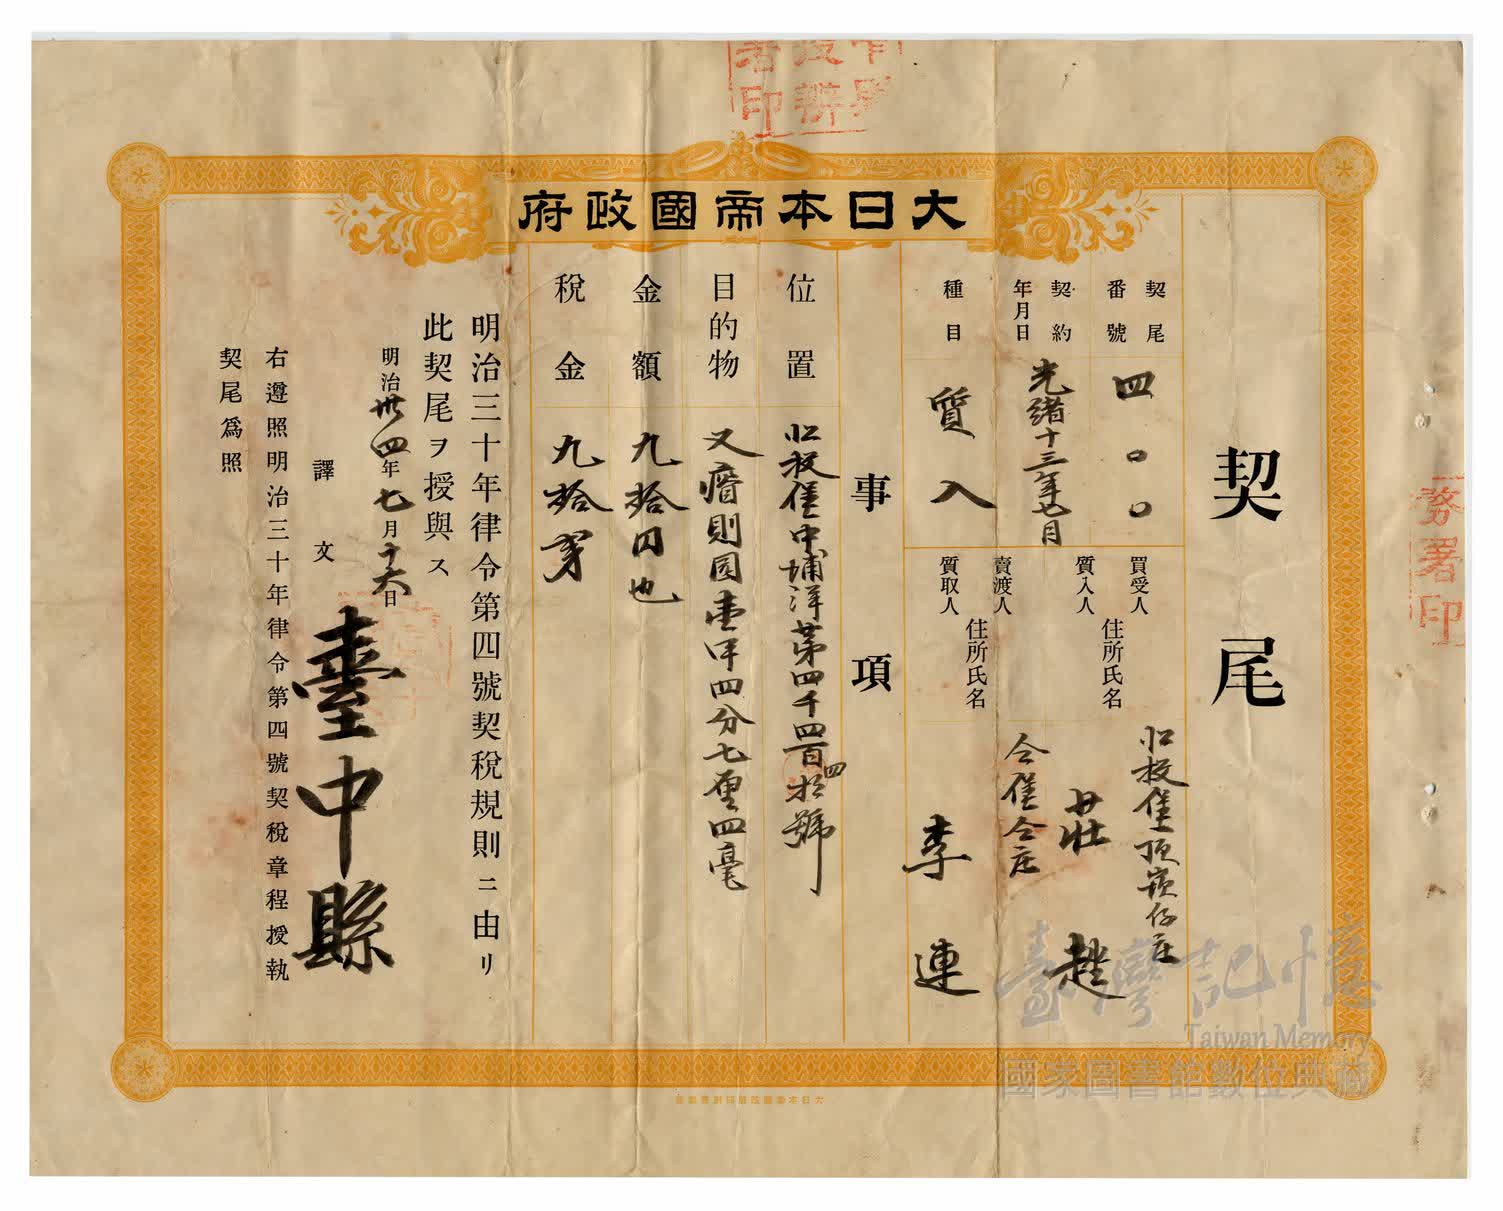 大日本帝國政府
契尾
契尾番號
四〇〇
契約年月日
光緒十三年七月
種目
質入
買受人
質入人
住所氏名
北投堡頂崁仔庄
莊趖
賣渡人
質取人
住所氏名
仝堡仝庄
李連
事項
位置
北投堡中埔洋第四千四百四拾號
目的物
又瘠則園壹甲四分七厘四毫
金額
九拾円也
稅金
九拾
明治三十年律令第四號契稅規則ニ由リ
此契尾ヲ授與ス
明治卅四年七月十六日
臺中縣
譯文
右遵照明治三十年律令第四號契稅章程授執
契尾為照
務署印
署印
臺灣記憶
Taiwan Memory
國家圖書館數位典藏